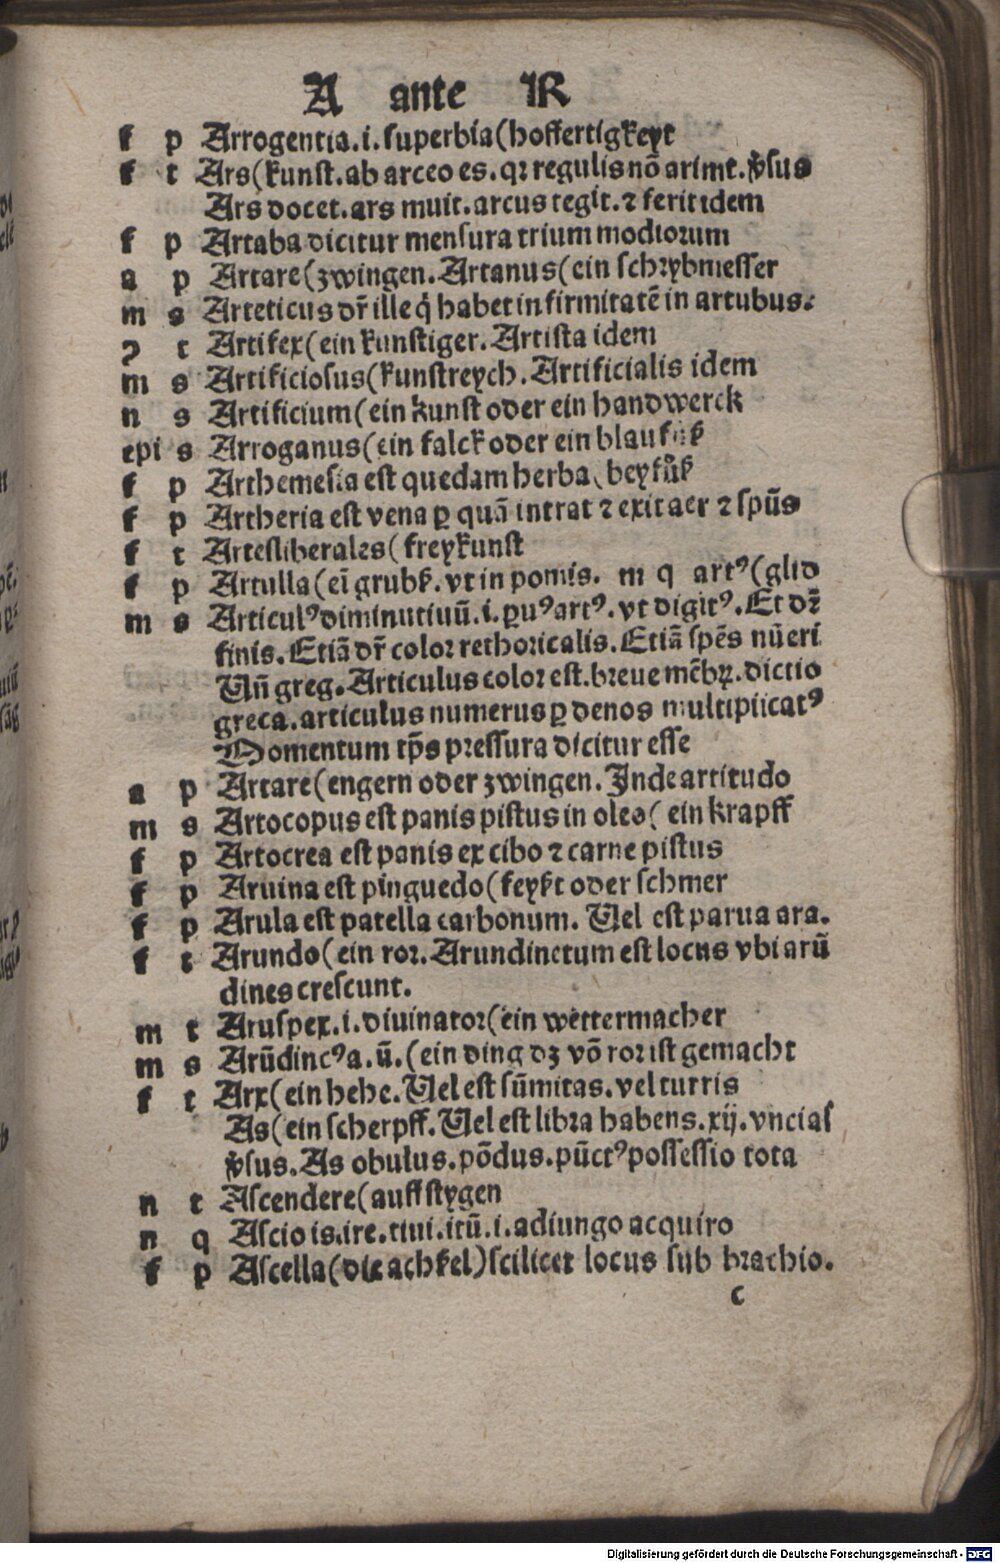 A ante R
f p Arrogentia.i.superbia(hoffertigkeyt
f t Ars(kunst.ab arceo es.qꝛ regulis nō arimt.v̓sus
Ars docet.ars muit.arcus tegit.⁊ ferit idem
f p Artaba dicitur mensura trium modiorum
a p Artare(zwingen.Artanus(ein schrybmesser
m s Arteticus dr̄ ille q̇ habet infirmitatē in artubus.
ꝯ t Artifex(ein kunstiger.Artista idem
m s Artificiosus(kunstreych.Artificialis idem
n s Artificium(ein kunst oder ein handwerck
epi s Arroganus(ein falck oder ein blaufuͦß
f p Arthemesia est quedam herba(beyfuͦß
f p Artheria est vena ꝑ quā intrat ⁊ exit aer ⁊ spūs
f t Artesliberales(freykunst
f p Artulla(eī grubß.vt in pomis. m q artꝰ(glid
m s Articulꝰ diminutiuū.i.ꝑuꝰ artꝰ.vt digitꝰ.Et dr̄
finis.Etiā dr̄ color rethoricalis.Etiā spēs nūeri
Uñ greg.Articulus color est.breue mēbꝝ.dictio
greca.articulus numerus ꝑ denos multiplicatꝰ
Momentum tp̄s pressura dicitur esse
a p Artare(engern oder zwingen.Inde artitudo
m s Artocopus est panis pistus in oleo(ein krapff
f p Artocrea est panis ex cibo ⁊ carne pistus
f p Aruina est pinguedo(feyßt oder schmer
f p Arula est patella carbonum. Uel est parua ara.
f t Arundo(ein ror.Arundinetum est locus vbi arū
dines crescunt.
m t Aruspex.i.diuinator(ein wettermacher
m s Arūdincꝰ a.ū.(ein ding dz vō ror ist gemacht
f t Arx(ein hehe.Uel est sūmitas.vel turris
As(ein scherpff.Uel est libra habens.xij.vncias
v̓sus.As obulus.pōdus.pūctꝰ possessio tota
n t Ascendere(auff stygen
n q Ascio is.ire.tiui.itū.i.adiungo acquiro
f p Ascella(die achßel)scilicet locus sub brachio.
c
Digitalisierung gefördert durch die Deutsche Forschungsgemeinschaft - DFG